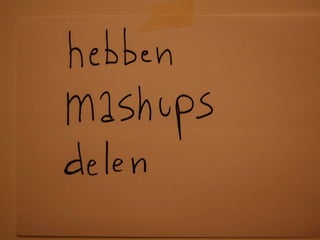 hebben
mashups
delen